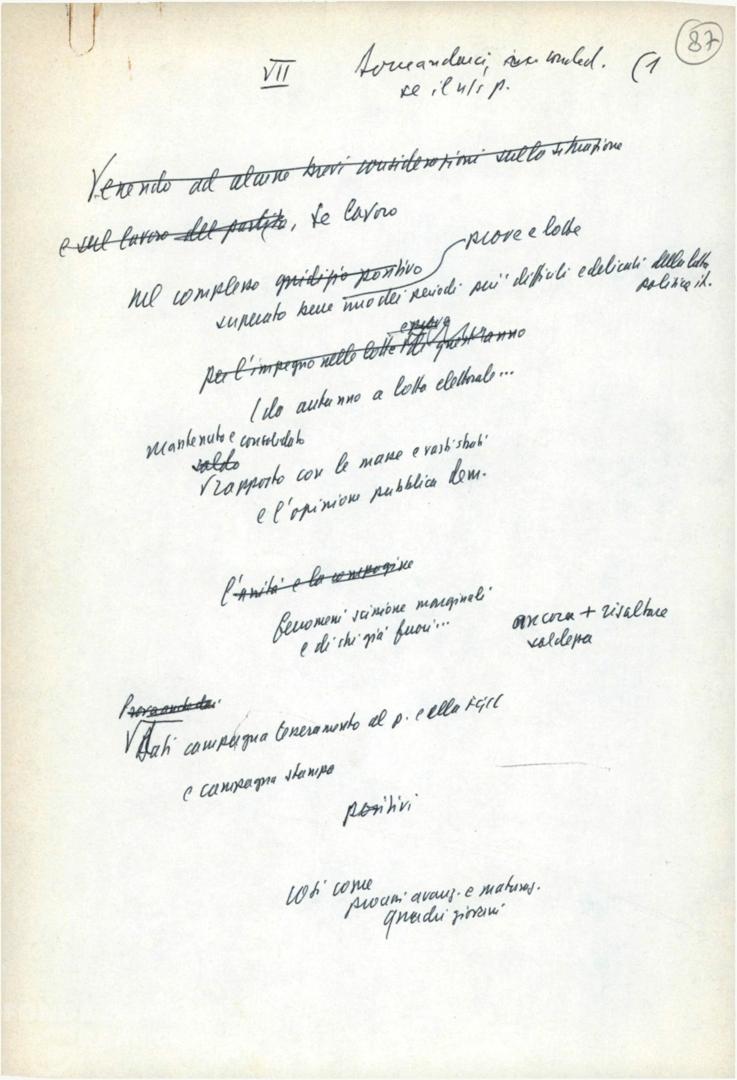 87
VII
(1
se il n/s p.
Venendo ad alcune brevi considerazioni sulla situazione
e sul lavoro del partito, se lavoro
prove e lotte
nel complesso giudizio positivo
superato bene uno dei periodi più difficili e delicati della lotta
politica it.
per l'impegno nelle lotte di quest'anno
(da autunno a lotta elettorale...
Mantenuto e consolidato
saldo
rapporto con le masse e vasti strati
e l'opinione pubblica dem.
l'unità e la compagine
fenomeni scissione marginali
e di chi già fuori...
ancora + risaltare
saldezza
Dati campagna tesseramento al p. e alla FGCI
e campagna stampa
positivi
così come
processi avanz. e maturaz.
quadri giovani